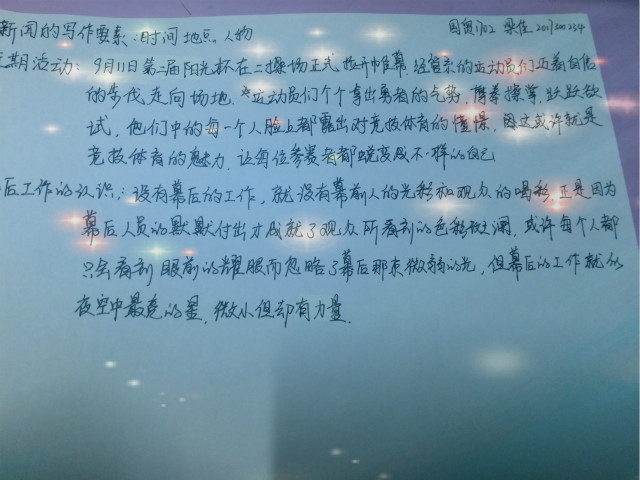 国贸1702
新闻的写作要素:时间 地点 人物
期活动: 9月11日第二届阳光杯在二操场正式拉开帷幕,经管系的运动员们迈着自信
的步伐走向场地,运动员们个个拿出勇者的气势,摩拳擦掌,跃跃欲
试,他们中的每一个人脸上都露出对竞技体育的憧憬,因这或许就是
竞技体育的魅力,让每位参赛者都蜕变成不一样的自己
后工作的认识:没有幕后的工作,就没有幕前人的光彩和观众的喝彩,正是因为
幕后人员的默默付出才成就了观众所看到的色彩斑澜,或许每个人都
只会看到眼前的耀眼而忽略了幕后那束微弱的光,但幕后的工作就似
夜空中最亮的星,微小但却有力量.